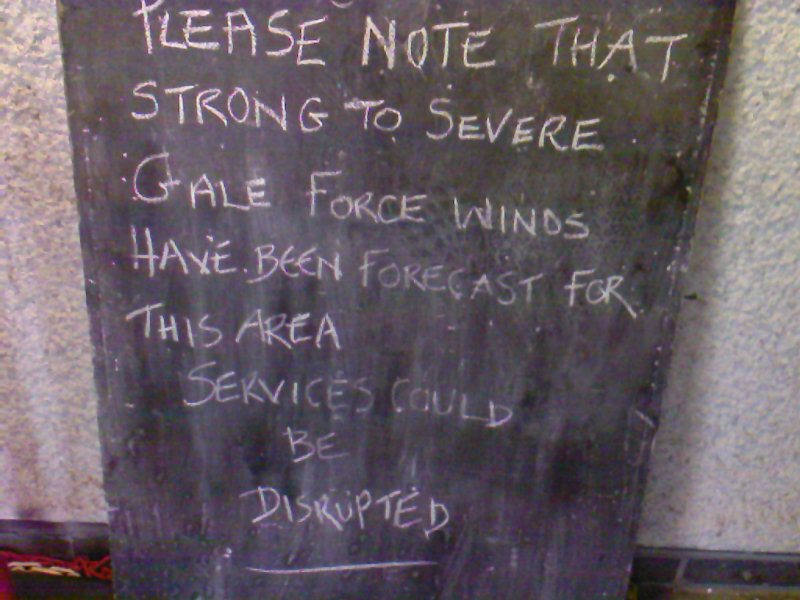 PLEASE NOTE THAT
STRONG TO SEVERE
GALE FORCE WINDS
HAVE BEEN FORECAST FOR
THIS AREA
SERVICES COULD
BE
DISRUPTED